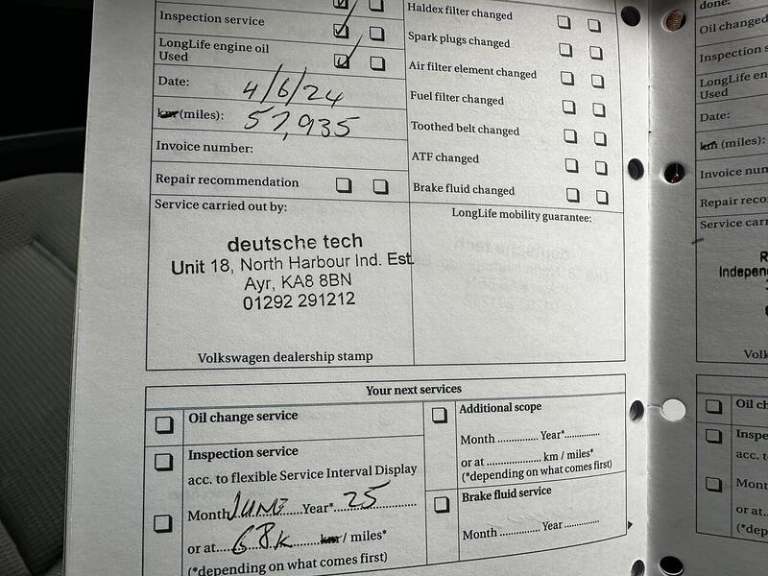 Inspection service
LongLife engine oil
Used
Date: 4/6/24
km (miles): 57,935
Invoice number:
Repair recommendation
Service carried out by:
deutsche tech
Unit 18, North Harbour Ind. Est
Ayr, KA8 8BN
01292 291212
Volkswagen dealership stamp
Haldex filter changed
Spark plugs changed
Air filter element changed
Fuel filter changed
Toothed belt changed
ATF changed
Brake fluid changed
LongLife mobility guarantee:
Your next services
Oil change service
Inspection service
acc. to flexible Service Interval Display
Month JUNE Year* 25
or at 68K km / miles*
(*depending on what comes first)
Additional scope
Month Year*
or at km / miles*
(*depending on what comes first)
Brake fluid service
Month Year
done:
Oil changed
Inspection s
LongLife en
Used
Date:
km (miles):
Invoice num
Repair reco
Service carr
R
Indepen
Volk
Oil ch
Inspe
acc. t
Mont
or at
(*dep